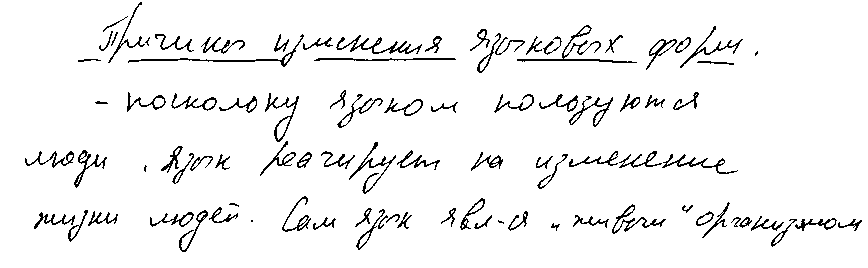 Причины изменения языковых форм.
- поскольку языком пользуются
люди, язык реагирует на изменение
жизни людей. Сам язык явл-ся „живым" организмом